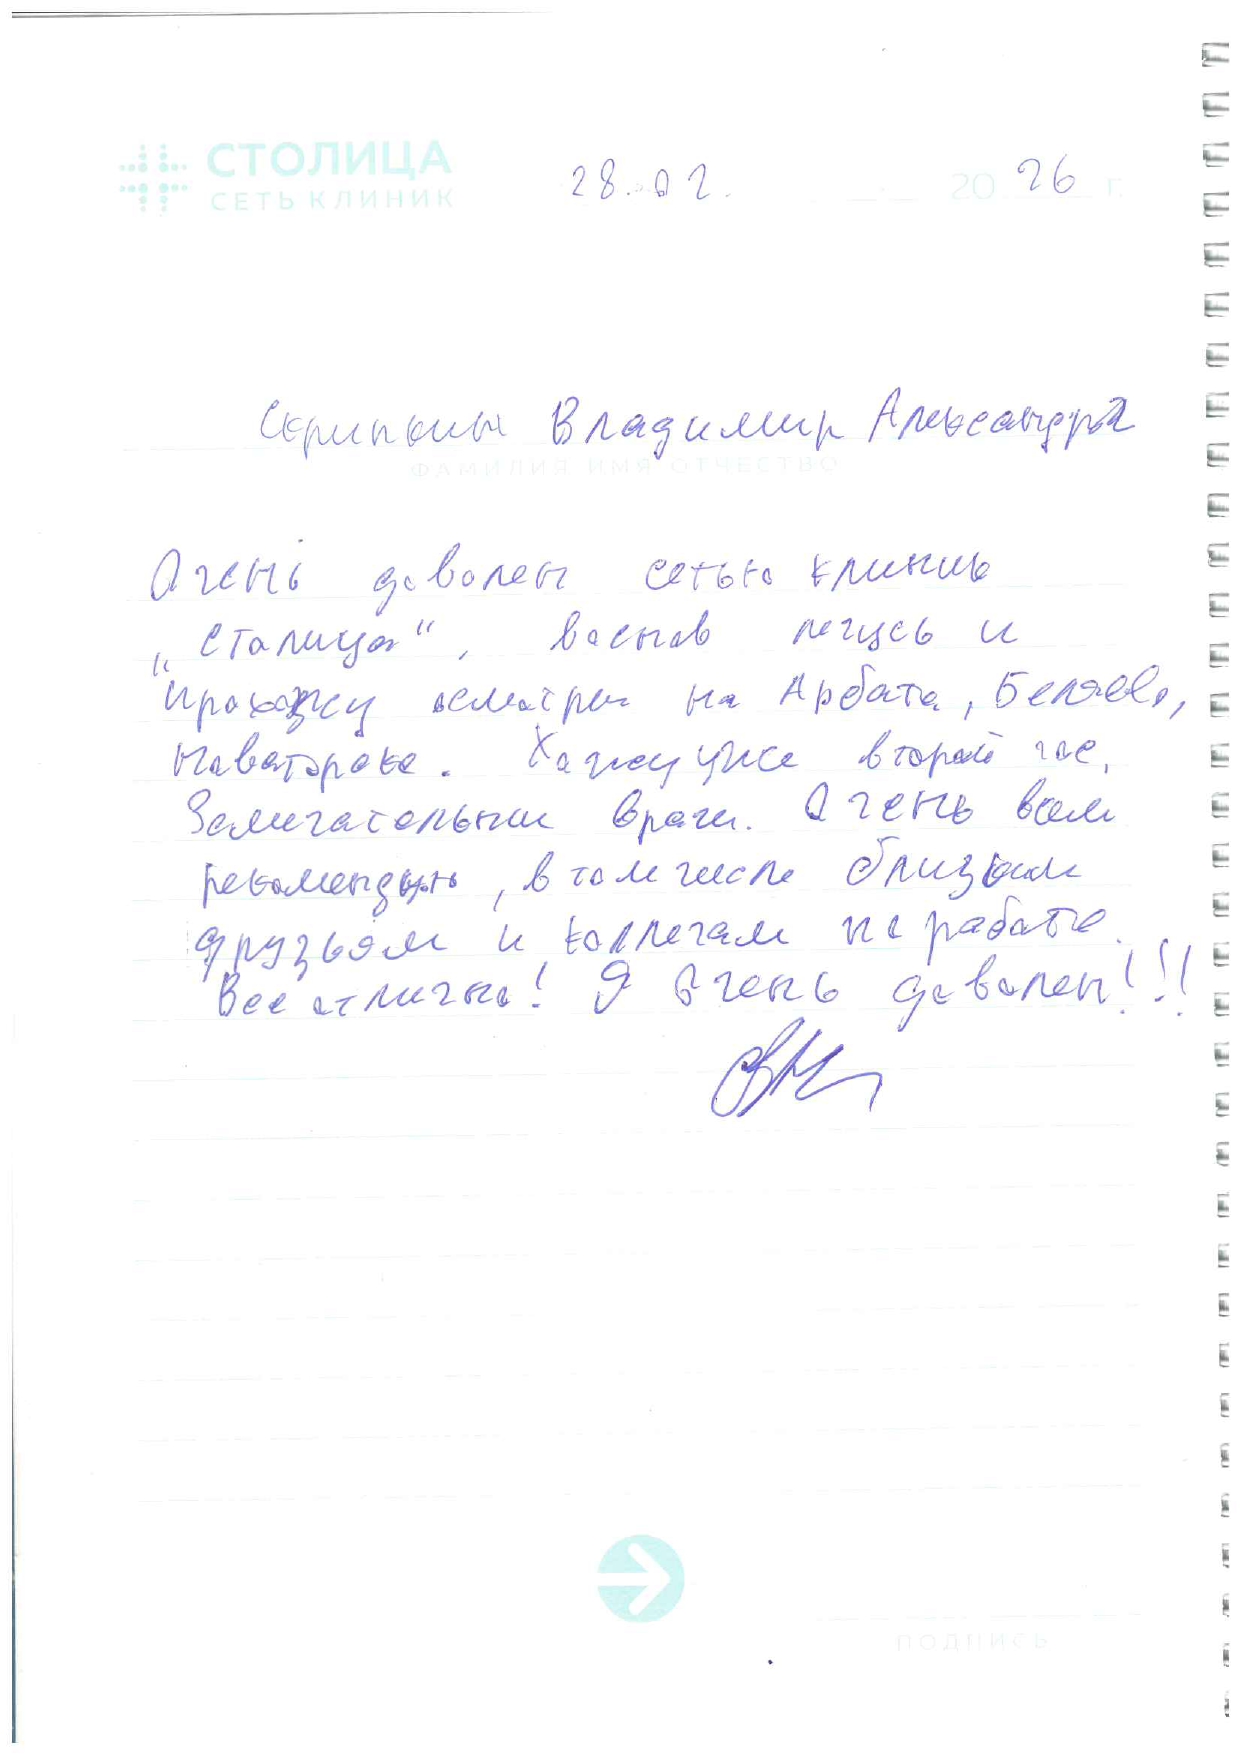 СТОЛИЦА
СЕТЬ КЛИНИК
28.02. 2026 г.
Скрипкин Владимир Александр
ФАМИЛИЯ ИМЯ ОТЧЕСТВО
Очень доволен сетью клиник
„Столица“, лечусь и
прохожу осмотры на Арбате, Беляево,
Новаторов. Хожу уже второй
Замечательные врачи. Очень всем
рекомендую, в том числе близким
друзьям и коллегам по работе.
Все отлично! Я очень доволен!!!
ПОДПИСЬ